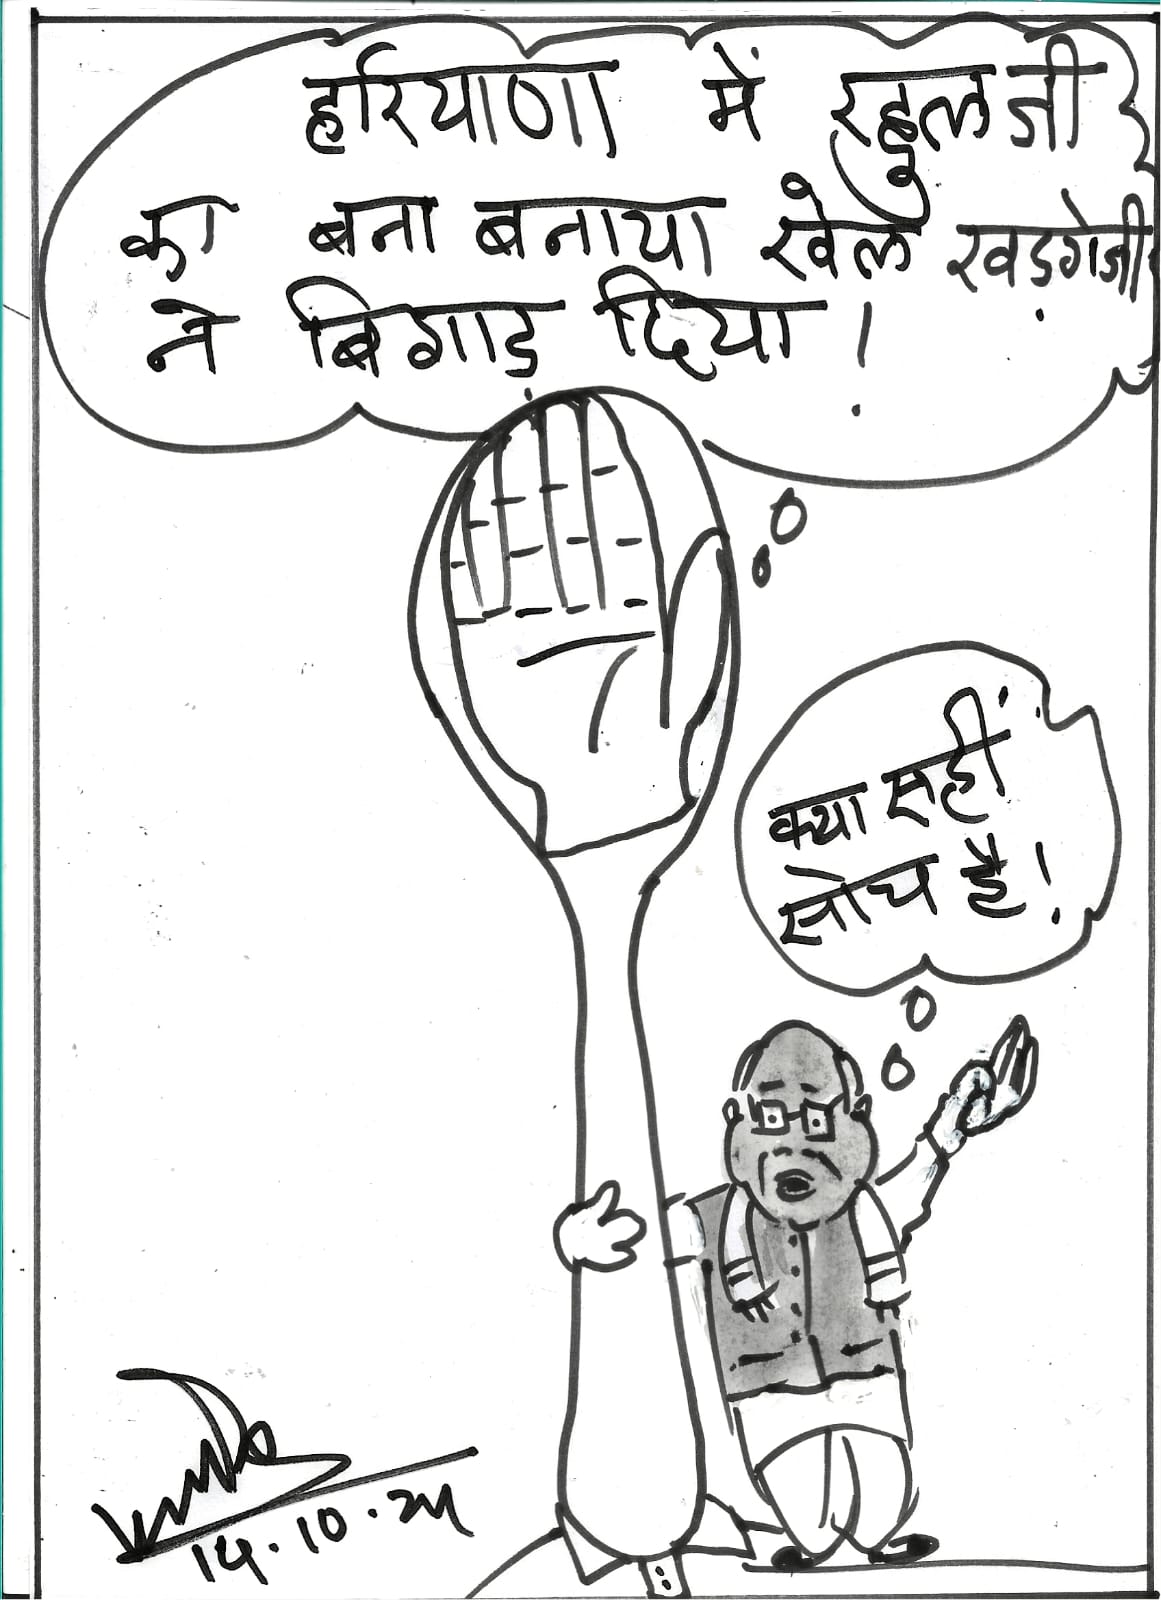 हरियाणा में रहुल जी
का बना बनाया खेल खड़गेजी
ने बिगाड़ दिया !
क्या सहीं
सोच है !